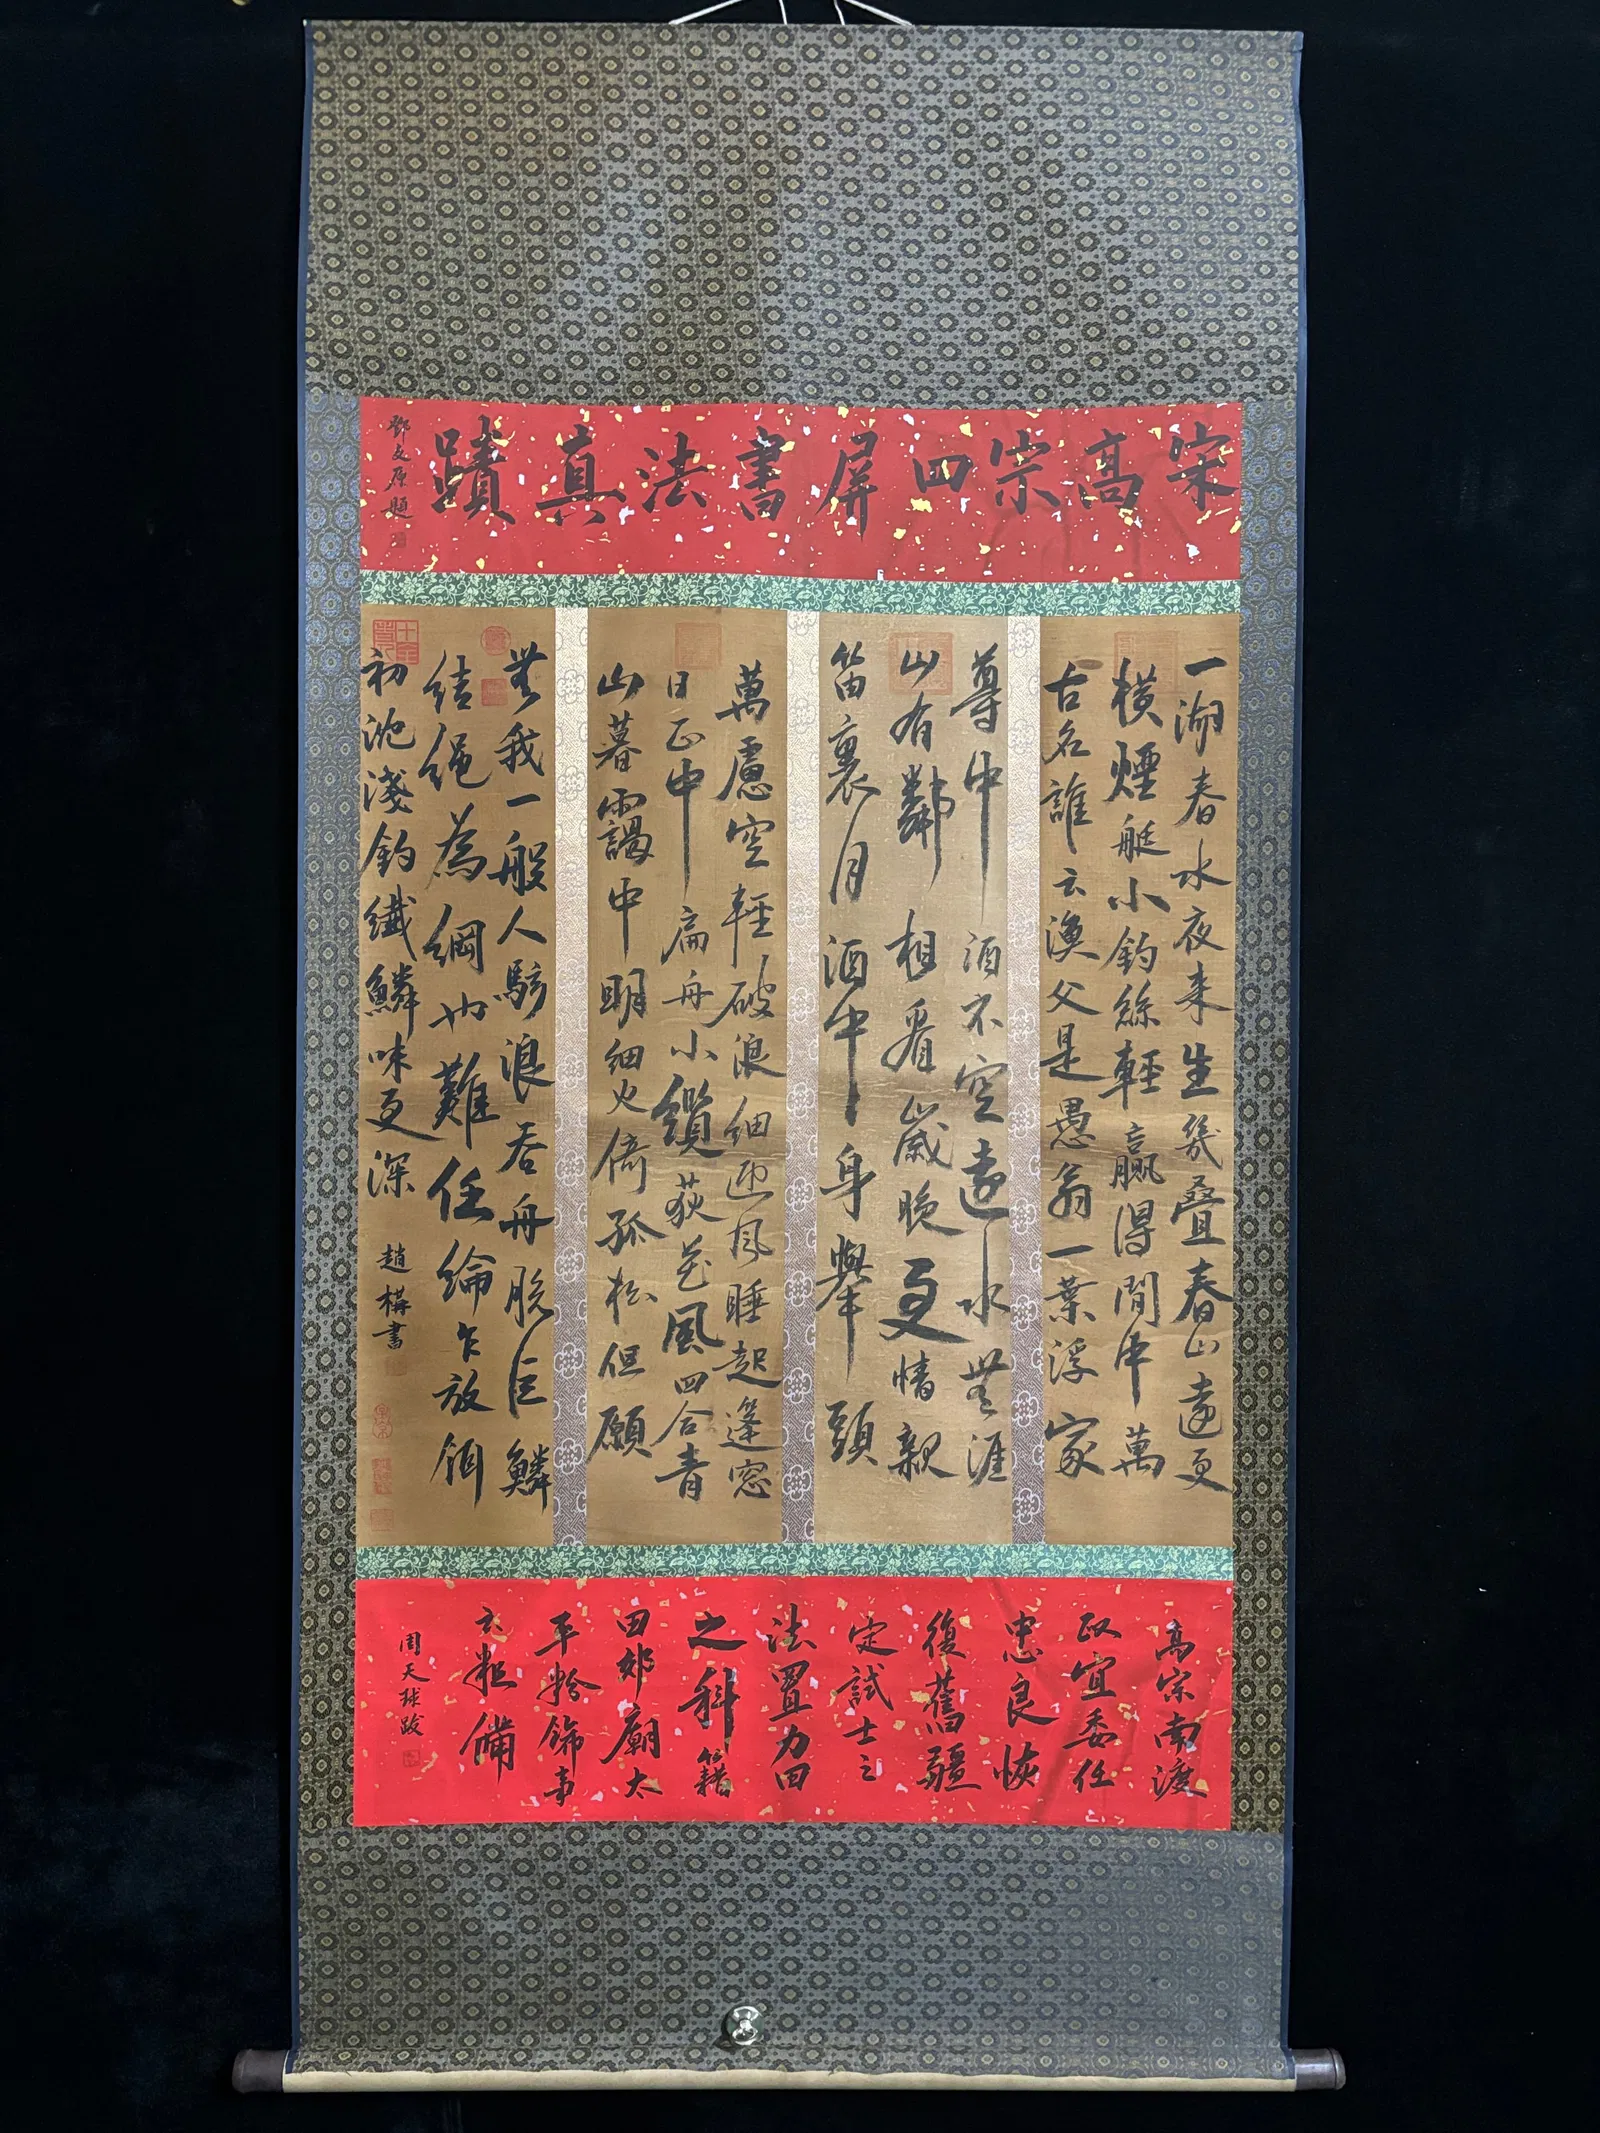 宋高宗四屏書法真蹟
鄧文原題
一湖春水夜來生幾疊春山遠更
橫煙艇小釣絲輕贏得閒中萬
古名誰云漁父是愚翁一葉浮家
尊中酒不空遠水無涯
山有鄰相看歲晚更情親
笛裏月酒中身舉頭
萬慮空輕破浪細迎風睡起篷窓
日正中扁舟小纜荻花風四合青
山暮靄中明細火倚孤松但願
無我一般人駭浪吞舟脫巨鱗
結繩為綱也難任綸乍放餌
初沈淺釣纖鱗味更深
趙構書
高宗南渡
政宜委任
忠良恢
復舊疆
定試士之
法置力田
之科籍
田郊廟太
平粉飾事
云粗備
周天球跋